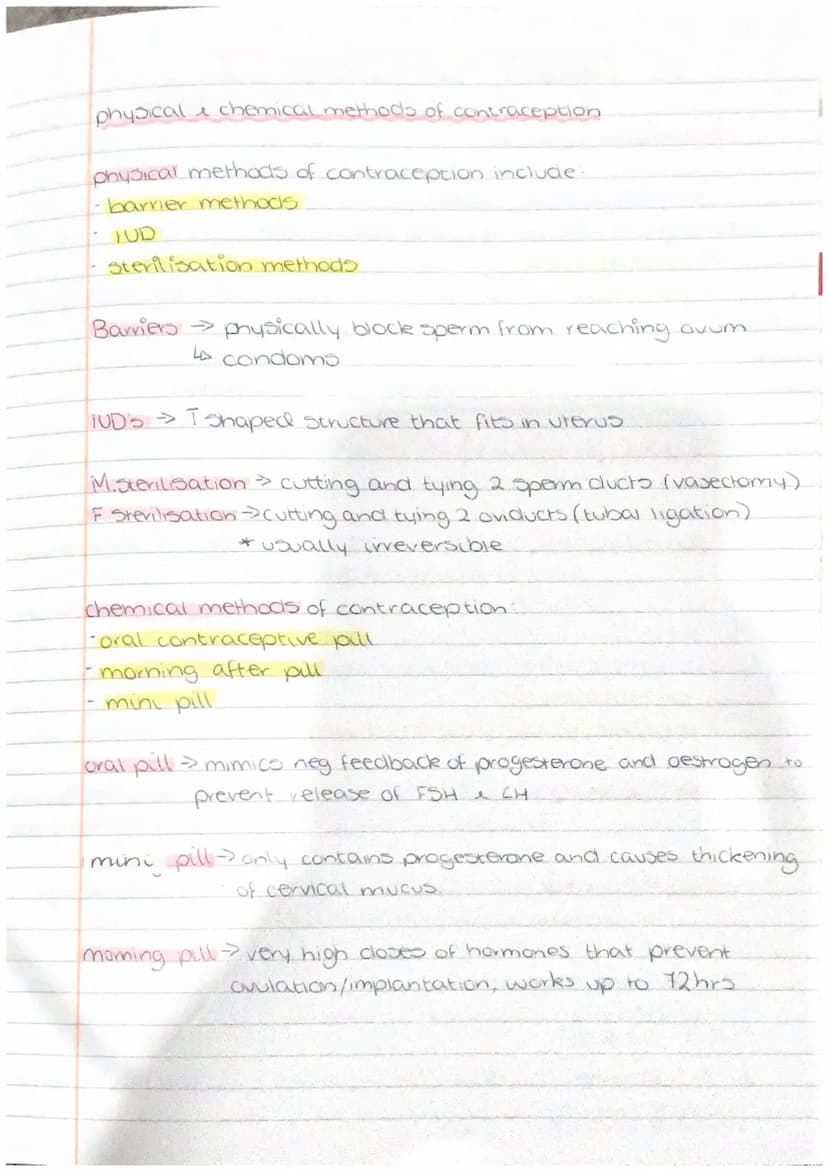 physical & chemical methods of contraception
physical methods of contraception include:
- barrier methods
- IUD
- sterilisation methods
Barriers → physically block sperm from reaching ovum
↳ condoms
IUD's → T shaped structure that fits in uterus
M.sterilisation → cutting and tying 2 sperm ducts (vasectomy)
F sterilisation → cutting and tying 2 oviducts (tubal ligation)
* usually irreversible
chemical methods of contraception:
- oral contraceptive pill
- morning after pill
- mini pill
oral pill → mimics neg feedback of progesterone and oestrogen to
prevent release of FSH & LH
mini pill → only contains progesterone and causes thickening
of cervical mucus.
morning pill → very high doses of hormones that prevent
ovulation/implantation, works up to 72hrs